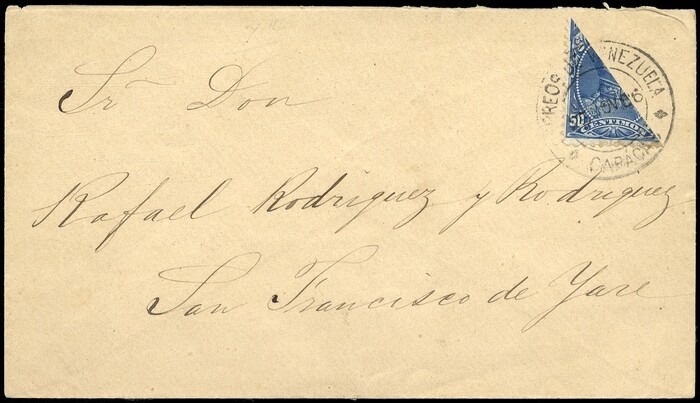 Sr Don
Rafael Rodriguez y Rodriguez
San Francisco de Yare
50
50
CENTIMOS
CORREOS DE VENEZUELA
NOVE 6
CARACAS